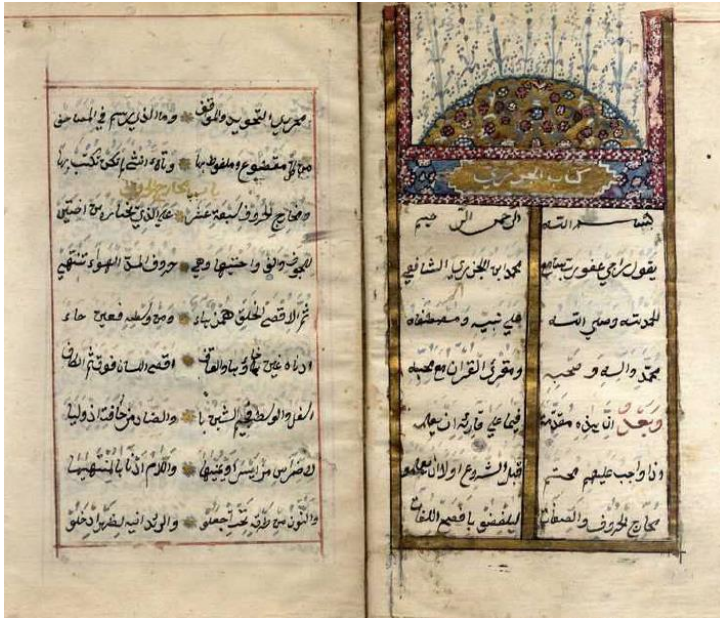 كتاب الجزري
بسم الله الرحمن الرحيم
يقول راجي عفو رب سامع محمد ابن الجزري الشافعي
الحمد لله وصلى الله على نبيه ومصطفاه
محمد واله وصحبه ومقرئ القران مع محبه
وبعد ان هذه مقدمة فيما على قارئه ان يعلمه
اذا واجب عليهم محتم قبل الشروع اولا ان يعلموا
مخارج الحروف والصفات ليلفضو بافصح اللغات
محرري التجويد والمواقف وما الذي رسم في المصاحف
من كل مقضوع وملفوظ بها وتاء انثى لم تكن تكتب بها
باب مخارج الحروف
ومخارج الحروف سبعة عشر على الذي يختاره من
للجوف والف واختيها وهي حروف المد للهواء تنتهي
ثم لاقصى الحلق همز هاء ومن وسطه فعين حاء
ادناه غين خاؤها والقاف اقصى اللسان فوق ثم الكاف
اسفل والوسط فجيم الشين يا والضاد من حافته اذ وليا
لاضراس من ايسر او يمناها واللام ادناها لمنتهاها
والنون من طرفه تحت جعلو والرا يدانيه لظهر ادخلو